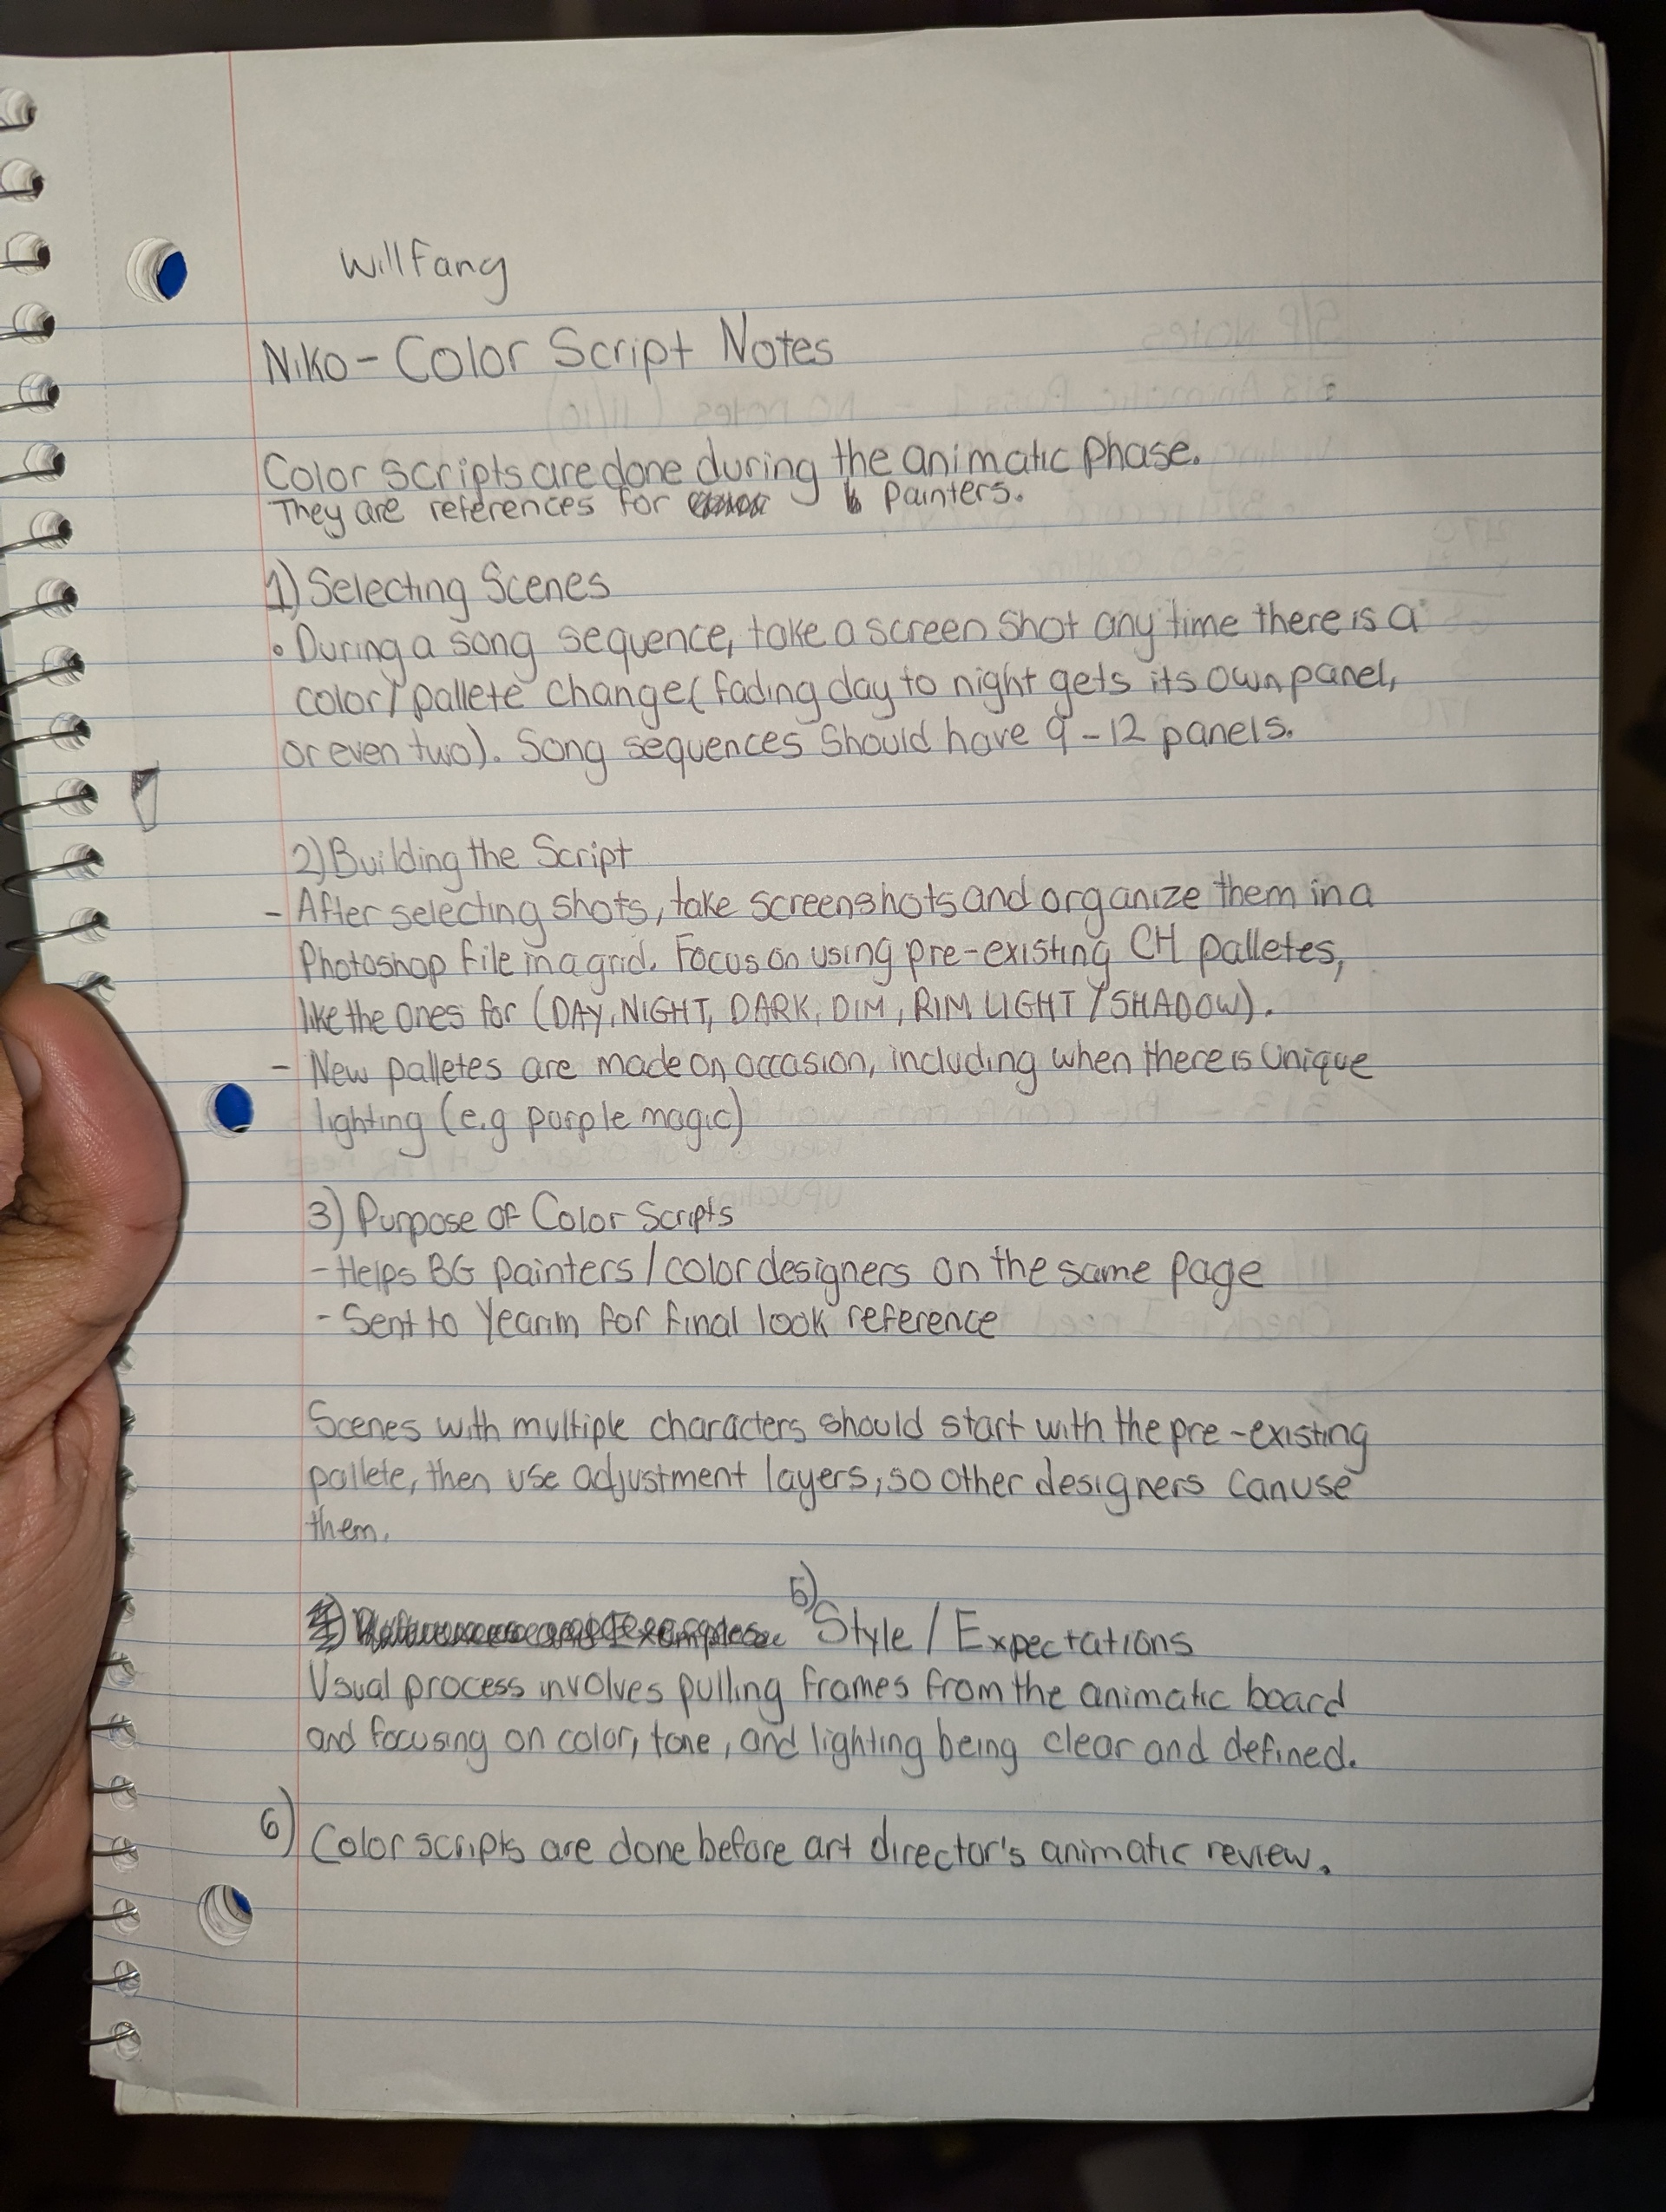 Will Fang
Niko - Color Script Notes
Color scripts are done during the animatic phase.
They are references for painters.
1) Selecting Scenes
• During a song sequence, take a screen shot any time there is a
color/pallete change (fading day to night gets its own panel,
or even two). Song sequences should have 9-12 panels.
2) Building the Script
- After selecting shots, take screenshots and organize them in a
Photoshop file in a grid. Focus on using pre-existing CH palletes,
like the ones for (DAY, NIGHT, DARK, DIM, RIM LIGHT / SHADOW).
- New palletes are made on occasion, including when there is unique
lighting (e.g purple magic)
3) Purpose of Color Scripts
- Helps BG painters / color designers on the same page
- Sent to for final look reference
Scenes with multiple characters should start with the pre-existing
pallete, then use adjustment layers, so other designers can use
them.
5) Style / Expectations
Usual process involves pulling frames from the animatic board
and focusing on color, tone, and lighting being clear and defined.
6) Color scripts are done before art director's animatic review.